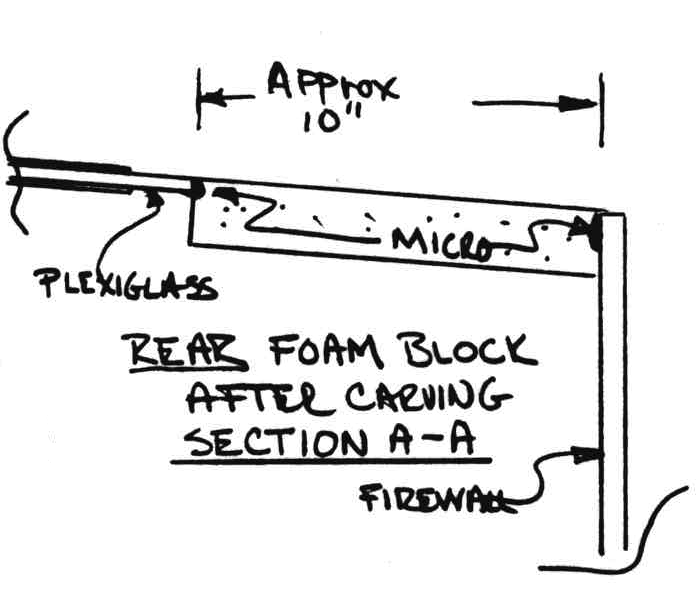 Approx
10"
MICRO
PLEXIGLASS
REAR FOAM BLOCK
AFTER CARVING
SECTION A-A
FIREWALL